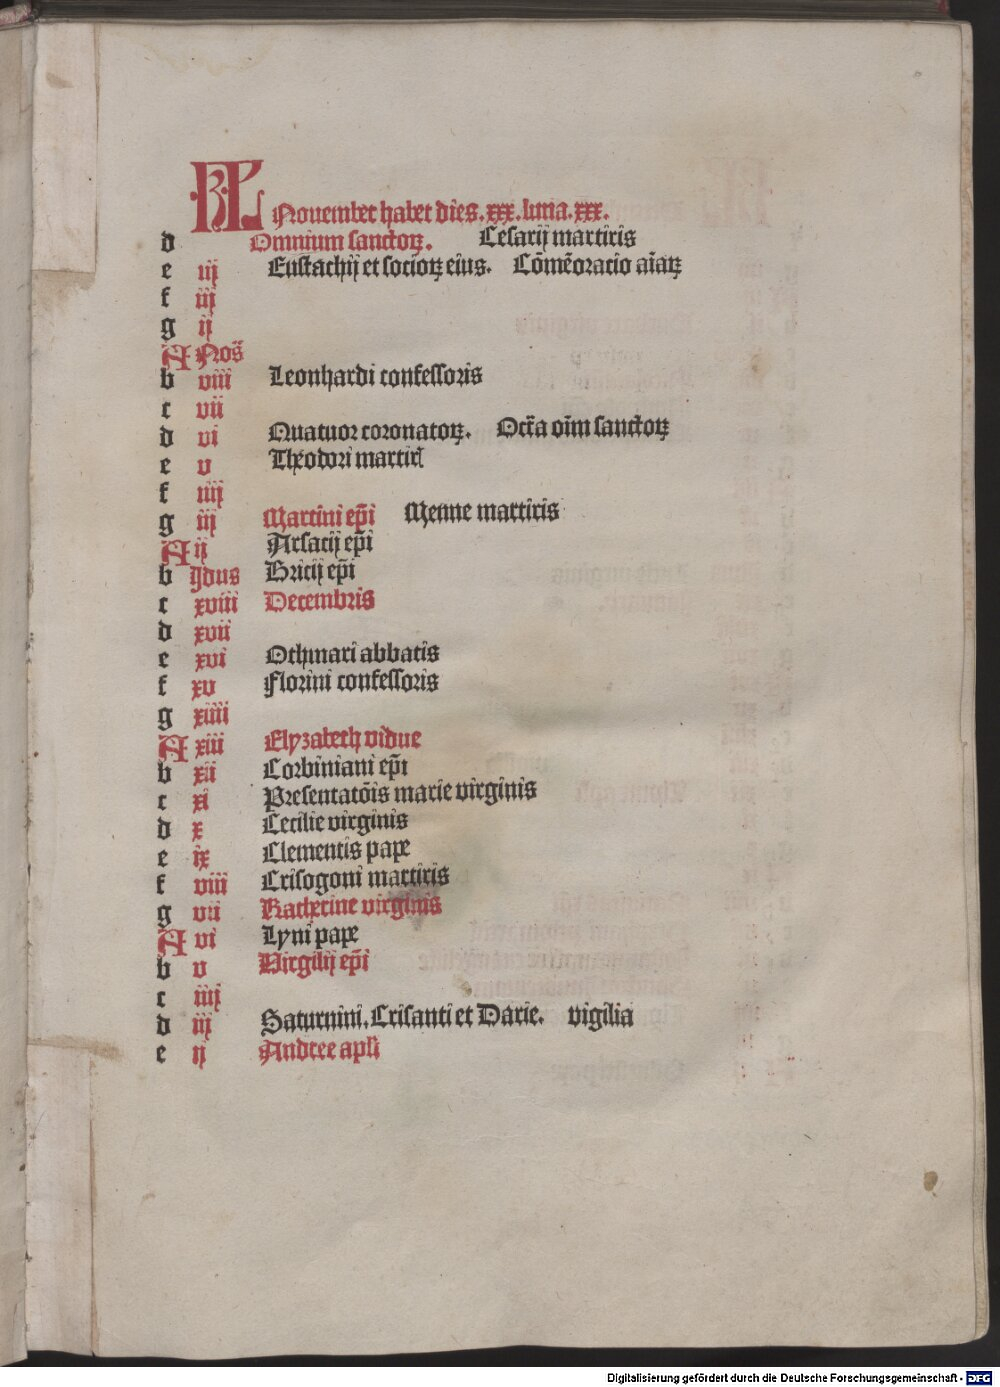 KL Nouember habet dies. xxx. luna. xxx.
d Omnium sanctoꝝ. Cesarij martiris
e iiij Eustachij et socioꝝ eius. Cōmēoracio aīaꝝ
f iij
g ij
A Noñ
b viii Leonhardi confessoris
c vii
d vi Quatuor coronatoꝝ. Octā oīm sanctoꝝ
e v Theodori martiris
f iiij
g iij Martini epī Menne martiris
A ij Arsacij epī
b Jdus Bricij epī
c xviii Decembris
d xvii
e xvi Othmari abbatis
f xv Florini confessoris
g xiiii
A xiii Elyzabeth vidue
b xii Corbiniani epī
c xi Presentatōis marie virginis
d x Cecilie virginis
e ix Clementis pape
f viii Crisogoni martiris
g vii Katherine virginis
A vi Lyni pape
b v Virgilij epī
c iiij
d iij Saturnini. Crisanti et Darie. vigilia
e ij Andree apłi
Digitalisierung gefördert durch die Deutsche Forschungsgemeinschaft - DFG